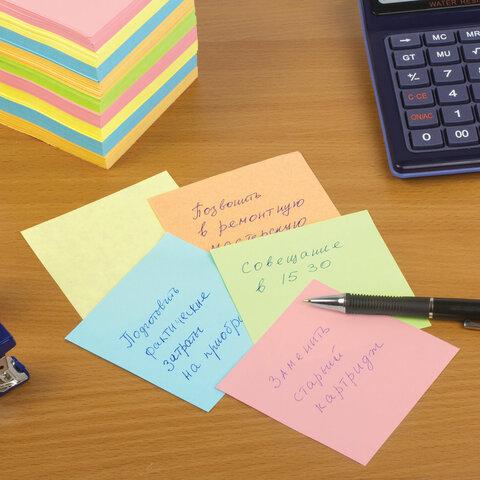 WATER RESI
→ MC MR
GT MU √
C·CE 4
ON/AC 1
0 00
Позвонить
в ремонтную
мастерскую
Совещание
в 15 30
Подготовить
фактические
затраты
на приобр
Заменить
старый
картридж